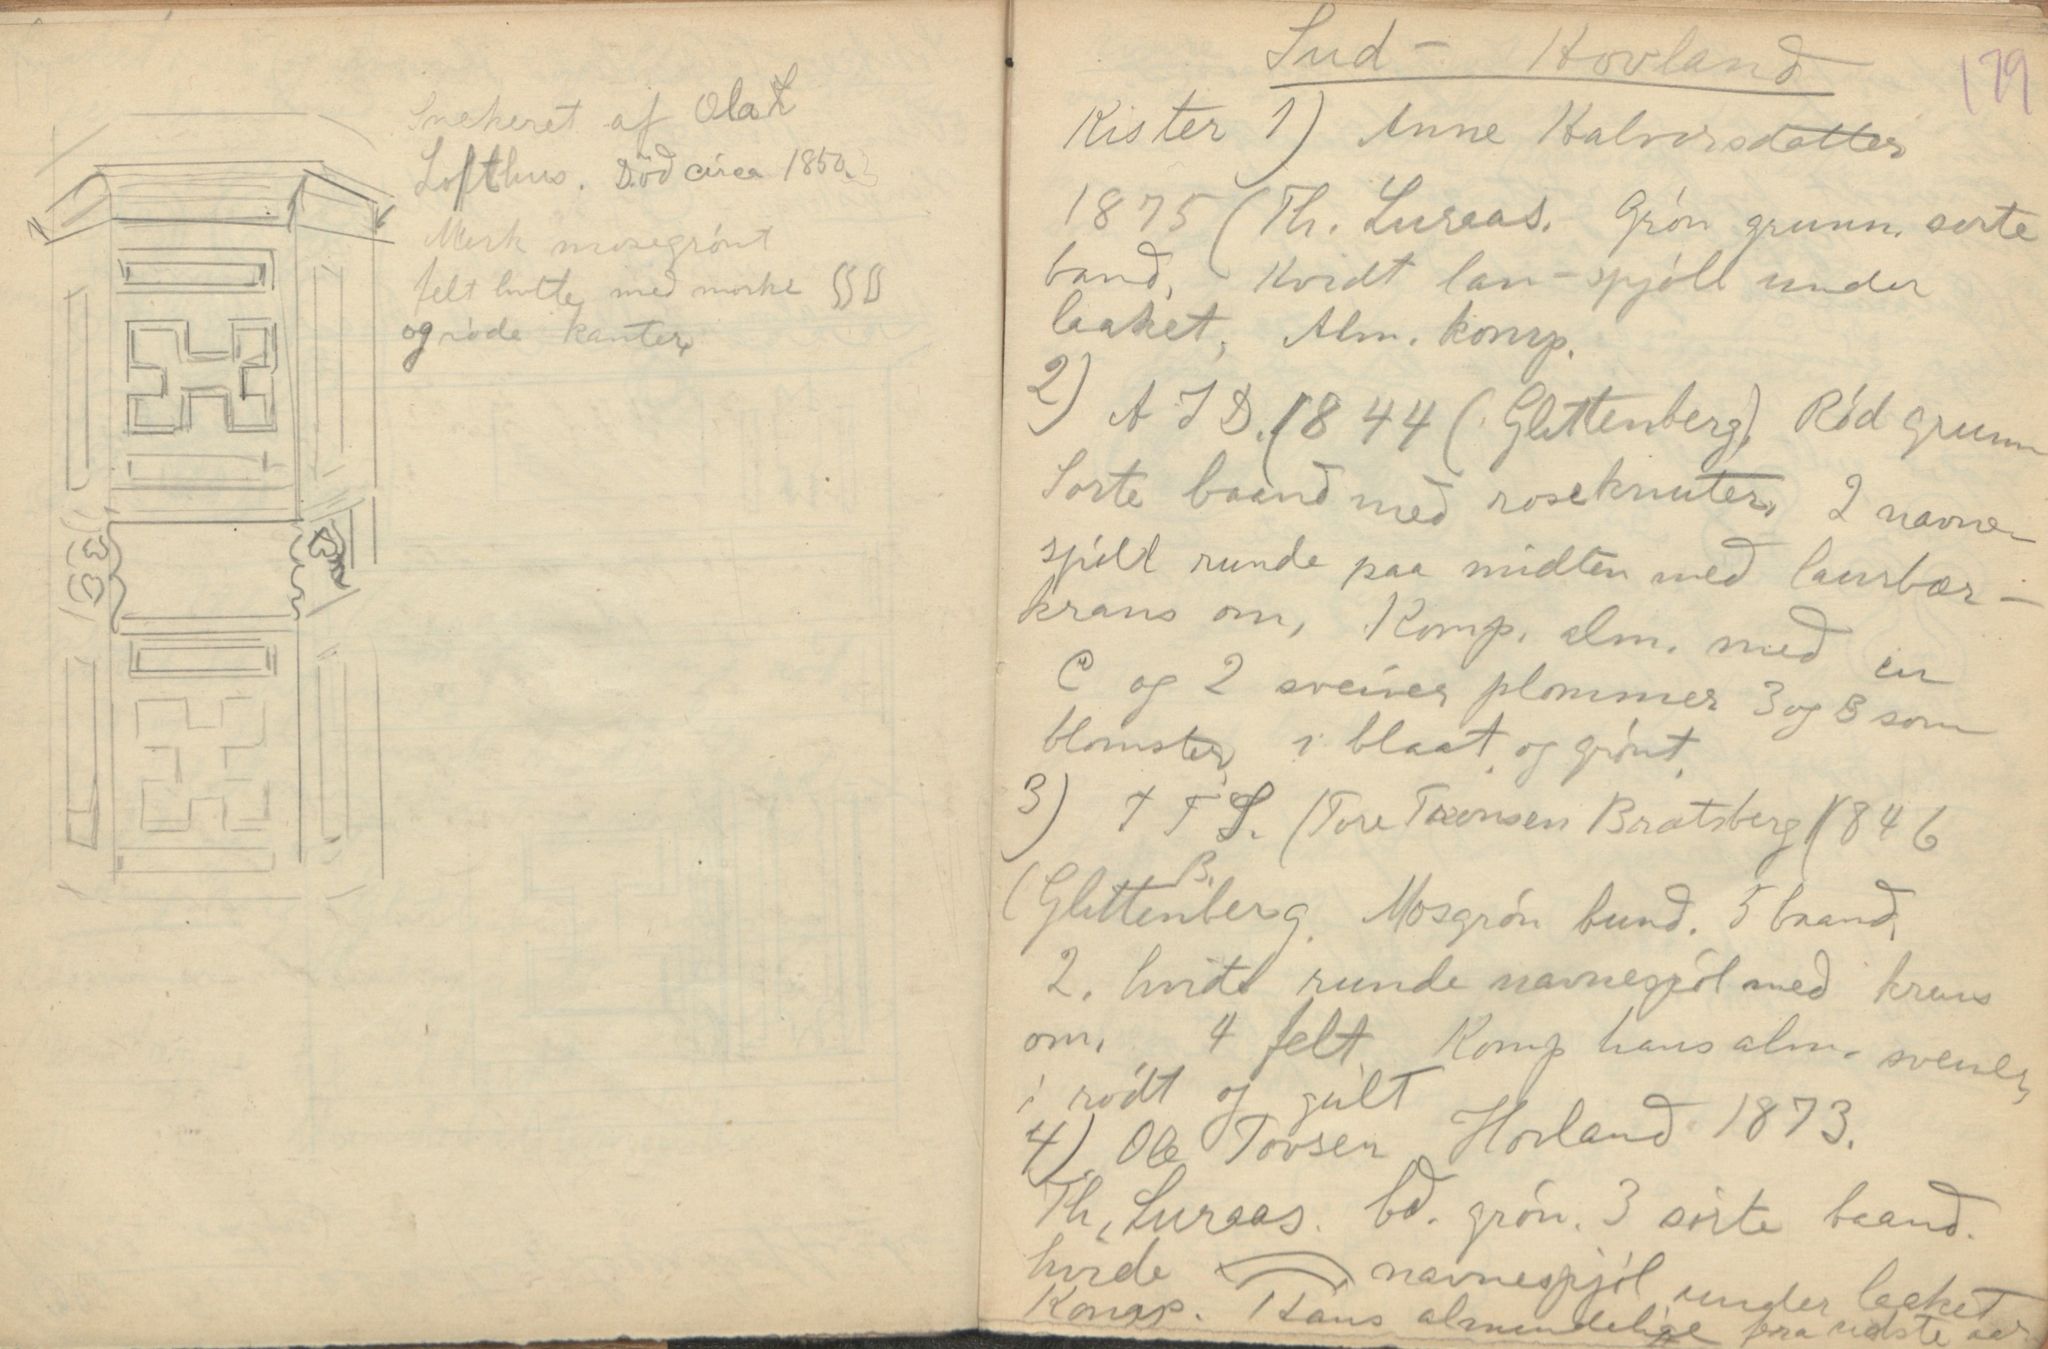 Snekeret af Olav
Lofthus. Död circa 1850.
Mørk mosegrónt
felt hvitte med mørke
og røde kanter
Sud - Hovland
179
Kister 1) Anne Halvorsdatter
1875 (Th. Luraas. Grón grunn. sorte
band, Hvidt lau - spjöll under
laaket, Alm. komp.
2) A I D. (1844 (Glittenberg) Ród grunn
Sorte baand med roseknuter, 2 navne-
spild runde paa midten med laurbær-
krans om, Komp. alm. med en
C og 2 sveiver plommer 3 og B som
blomster, i blaat og grónt.
3) T T S. (Tore Toronsen Bratsberg (1846
B.
(Glittenberg. Mosgrón bund. 5 baand,
2. hvide runde navnespjöl med krans
om, 4 felt, Komp hans alm. sveiver,
i ródt og gült
4) Ole Tovsen Hovland 1873.
Th, Luraas. bd. grón. 3 sorte baand.
hvide navnespjól under laaket
Komp. Hans almindelige fra sidste aar